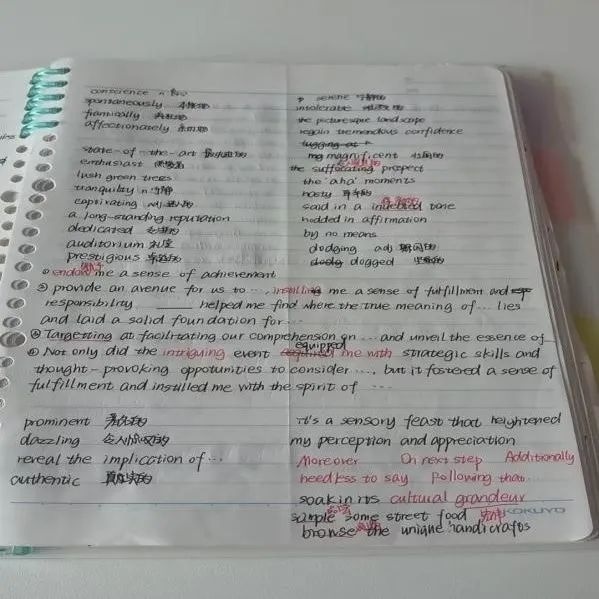 conscience n 良心
spontaneously
frantically
affectionately
state-of-the-art 最先进的
enthusiast
lush green trees
tranquility n 宁静
captivating adj 迷人的
a long-standing reputation
dedicated
auditorium 礼堂
prestigious
serene 宁静的
intolerable
the picturesque landscape
regain tremendous confidence
lugging at
mg magnificent 壮丽的
the suffocating prospect
the 'aha' moments
hasty 草率的
said in a tone
nodded in affirmation
by no means
dodging adj
dogged 坚毅的
① endow me a sense of achievement
② provide an avenue for us to ... instilling me a sense of fulfillment and
responsibility ______ helped me find where the true meaning of ... lies
and laid a solid foundation for ...
③ Targetting at facilitating our comprehension on ... and unveil the essence of
equipped
④ Not only did the intriguing event me with strategic skills and
thought-provoking oppotunities to consider ..., but it fostered a sense of
fulfillment and instilled me with the spirit of ...
prominent
dazzling 令人惊叹的
reveal the implication of ...
authentic 真实的
it's a sensory feast that heightened
my perception and appreciation
Moreover On next step Additionally
needless to say Following that
soak in its cultural grandeur
sample some street food 宏伟
browse the unique handicrafts
KOKUYO